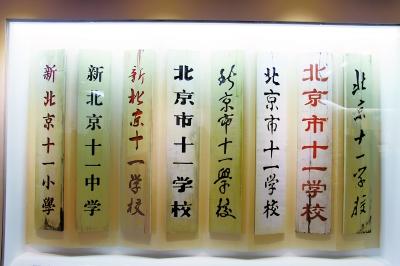 新北京十一小學
新北京十一中学
新北京十一学校
北京市十一学校
京市十一學校
北京市十一学校
北京市十一学校
北京十一学校